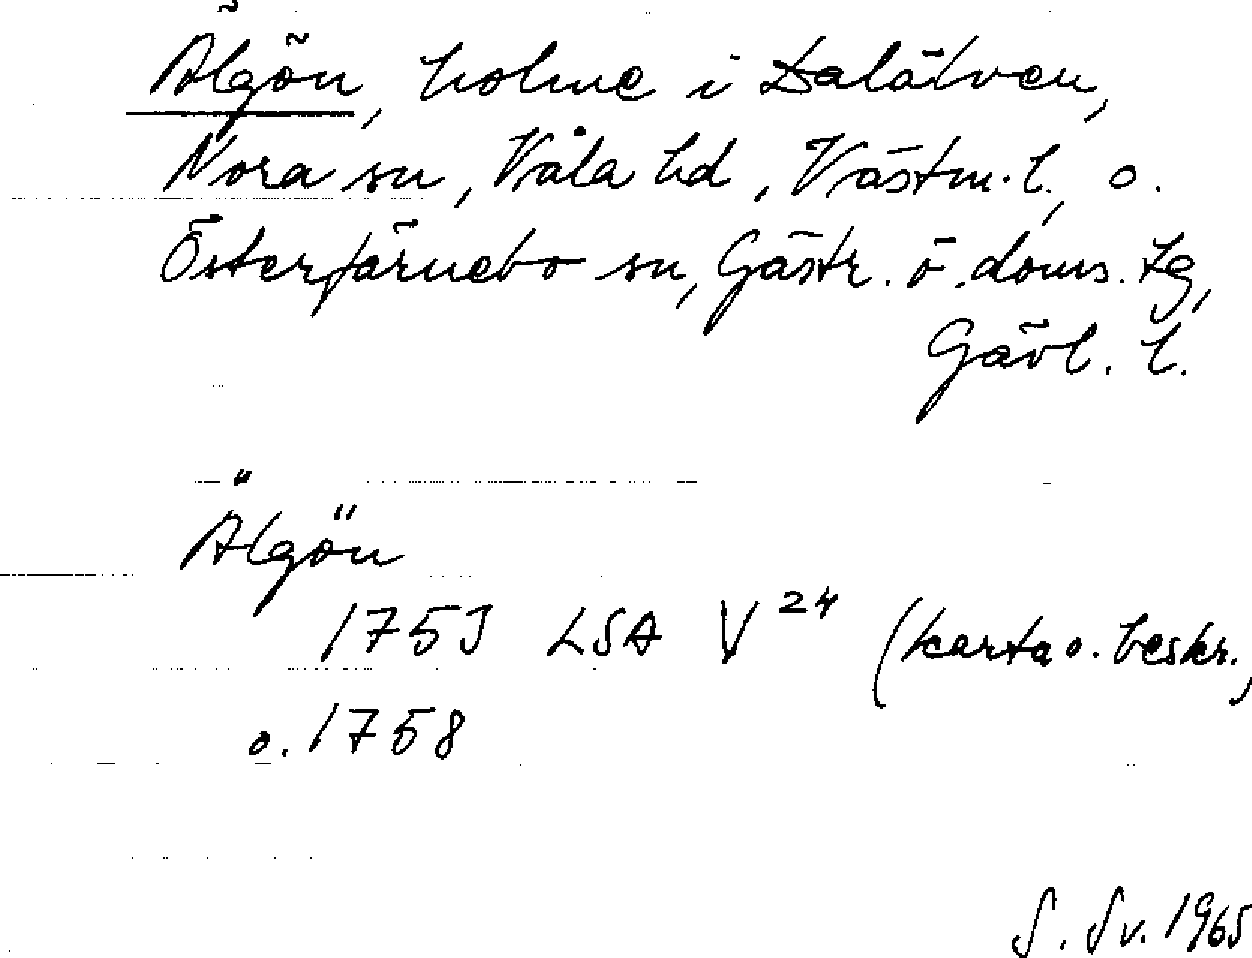 Älgön, holme i Dalälven,
Nora sn, Våla hd, Västm. l., o.
Österfärnebo sn, Gästr. ö. doms. tg,
Gävl. l.
Älgön
1753 LSA V 24 (karta o. beskr.,
o. 1758
S. Sv. 1965